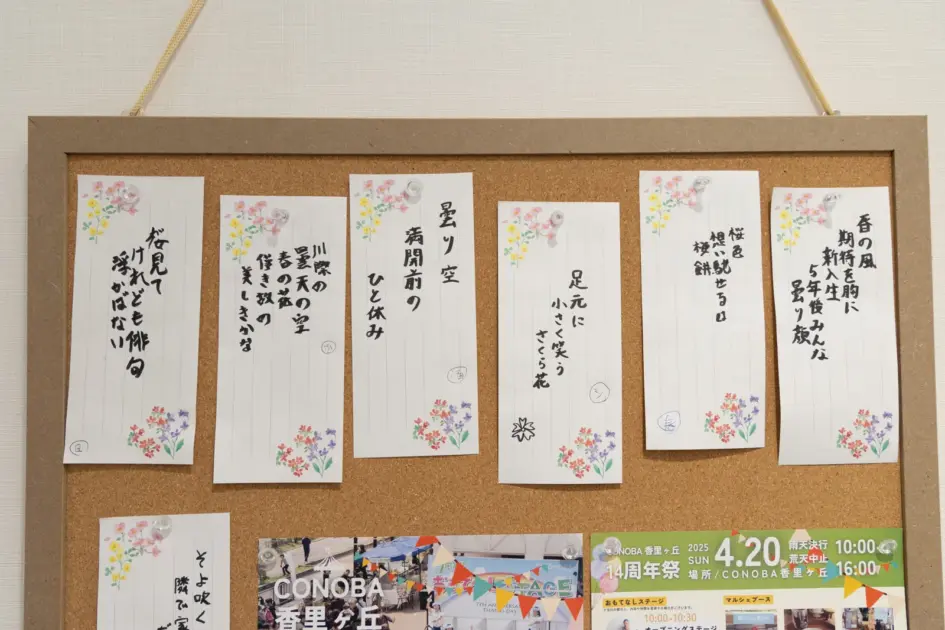 桜見て
けれども俳句
浮かばない
川際の
曇天の空
春の花
儚き故の
美しきかな
曇り空
満開前の
ひと休み
足元に
小さく笑う
さくら花
桜色
想い馳せる日
桜餅
春の風
期待を胸に
新入生
5年後みんな
曇り顔
そよ吹く
隣で
CONOBA
香里ヶ丘
CONOBA 香里ヶ丘
14周年祭
2025
SUN
4.20
雨天決行
荒天中止
10:00~
16:00
場所/CONOBA香里ケ丘
おもてなしステージ
10:00~10:30
オープニングステージ
マルシェブース